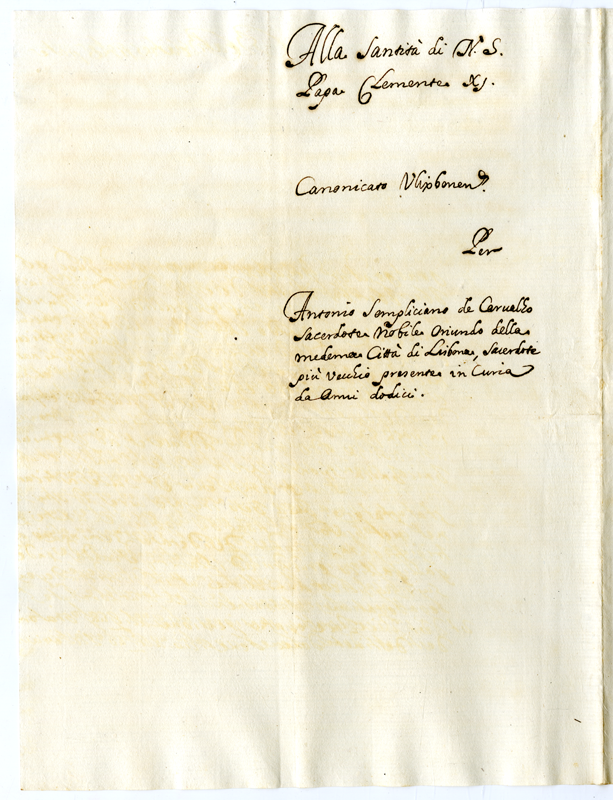 Alla Santità di N. S.
Papa Clemente XJ.
Canonicato Vlixbonen.
Per
Antonio Sempliciano de Carualho
Sacerdote Nobile Oriundo della
medema Città di Lisbona, Sacerdote
più Vecchio presente in Curia
da Anni dodici.